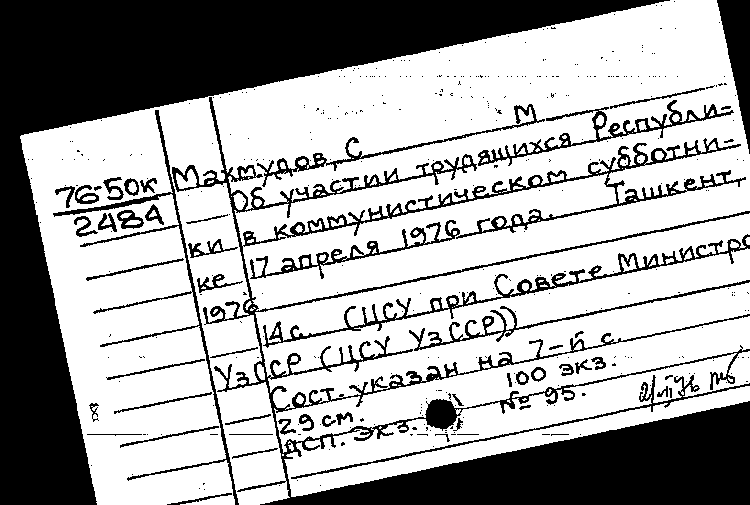 М
76-50к Махмудов, С
2484 Об участии трудящихся Республи-
ки в коммунистическом субботни-
ке 17 апреля 1976 года. Ташкент,
1976
14 с. (ЦСУ при Совете Министро
УзССР (ЦСУ УзССР))
Сост. указан на 7-й с.
29 см. 100 экз.
ДСП. Экз. № 95.